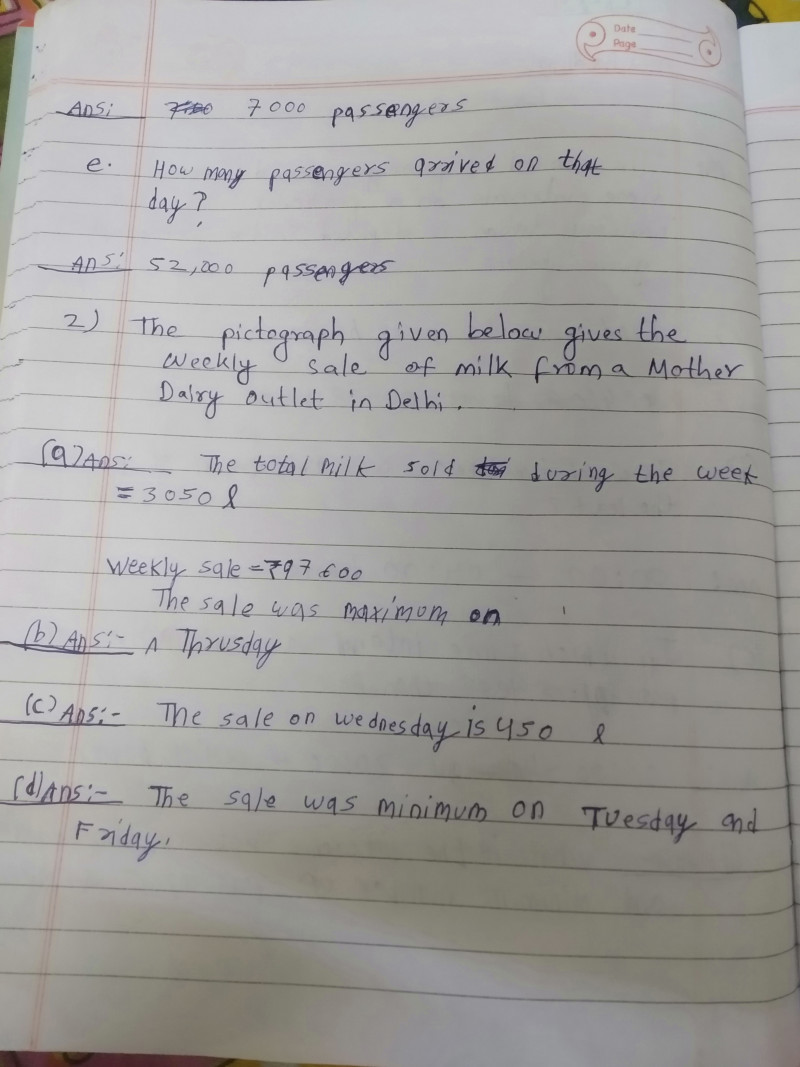 Date
Page
Ans: 7000 passengers
e. How many passengers arrived on that
day?
Ans: 52,000 passengers
2) The pictograph given below gives the
weekly sale of milk from a Mother
Dairy outlet in Delhi.
(a) Ans: The total milk sold during the week
= 3050 l
Weekly sale = ₹97600
The sale was maximum on
(b) Ans:- ^ Thrusday
(c) Ans:- The sale on wednesday is 450 l
(d) Ans:- The sale was minimum on Tuesday and
Friday.